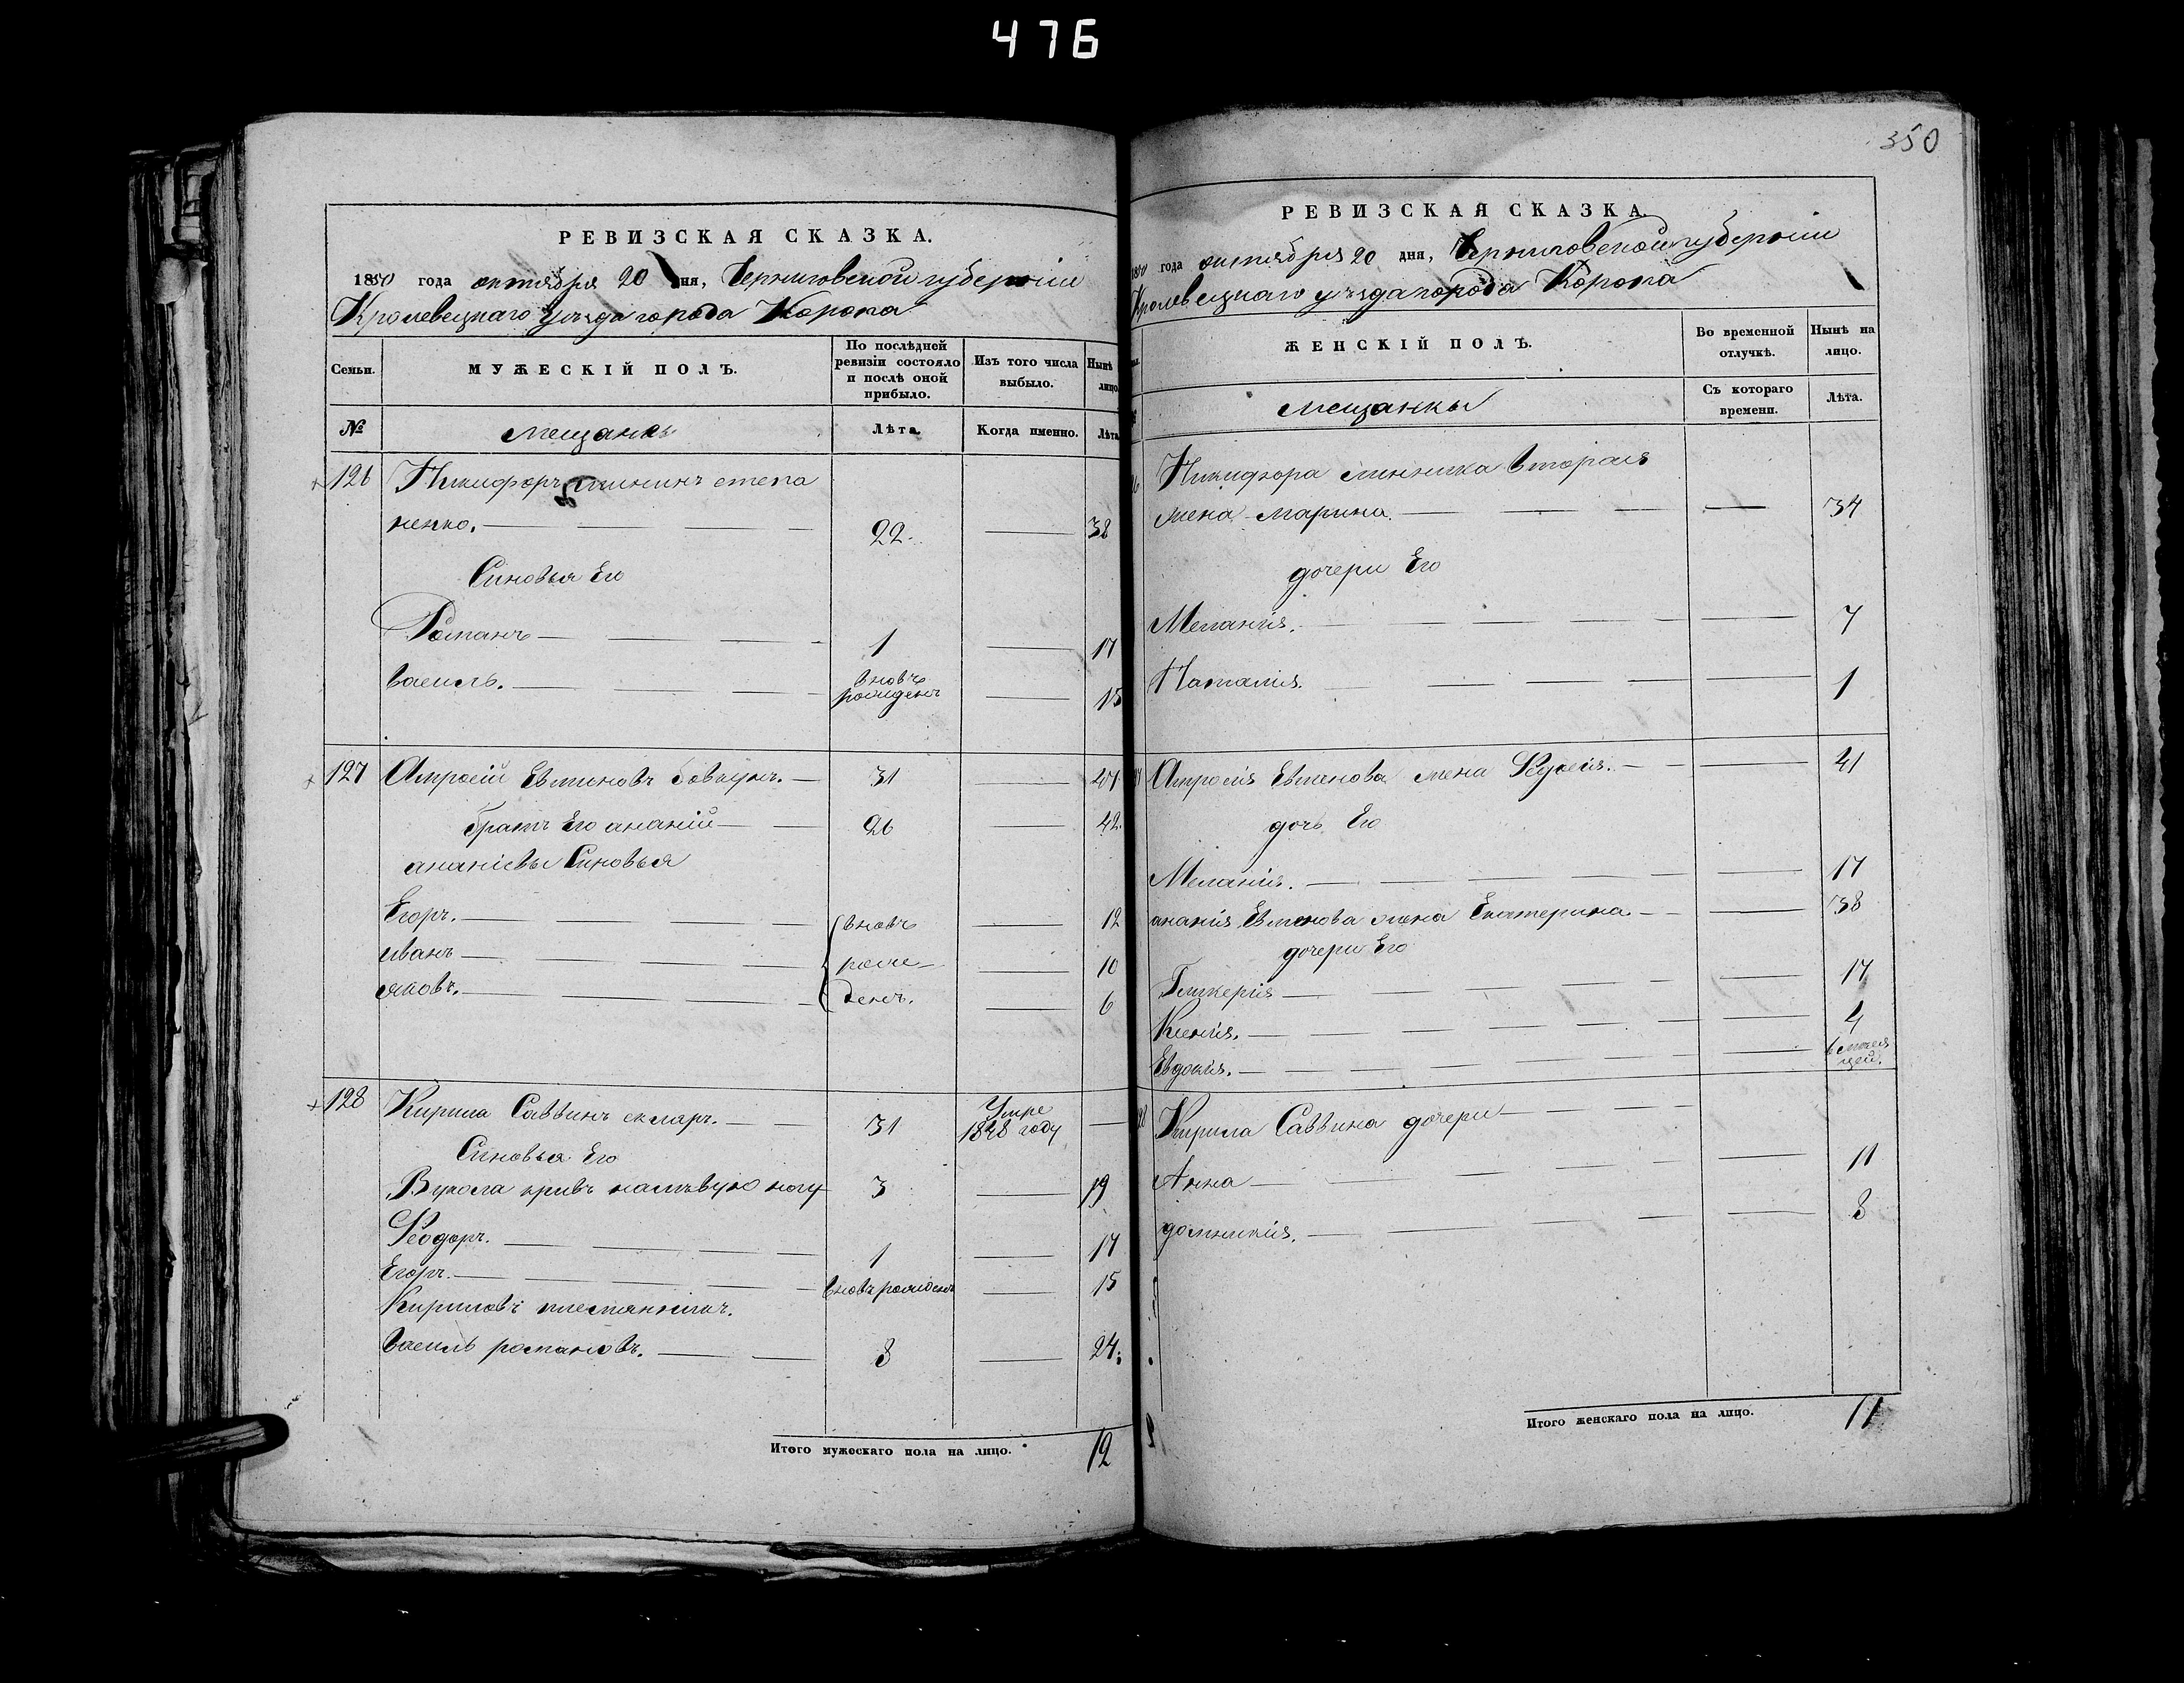 476
РЕВИЗСКАЯ СКАЗКА.
1850 года октября 20 дня, Черниговской губерніи
Кролевецкаго уѣзда города Коропа
Семьи.
МУЖЕСКІЙ ПОЛЪ.
По послѣдней ревизіи состояло и послѣ оной прибыло.
Изъ того числа выбыло.
Нынѣ лицо
№
мещанъ
Лѣта
Когда именно.
Лѣта
126 Никифоръ степа
ненко. 22. 38
Синовья Его
Романъ 1 17
василь. вновъ рожденъ 15
127 Амросій Евтиновъ 31 47
братъ Его ананій 26 42.
ананіевы Синовья
Егоръ. вновъ 12
иванъ рож 10
яковъ. денъ. 6
128 Кирила Саввинъ скляръ. 31 Умре 1848 году
Синовья Его
Вукола кривъ налѣвую ногу 3 19
Феодоръ. 1 17
Егоръ. вновъ рожденъ 15
Кириловъ племянникъ.
василь романовъ. 8 24
Итого мужескаго пола на лицо. 12
350
РЕВИЗСКАЯ СКАЗКА.
1850 года октября 20 дня, Черниговской губерніи
Кролевецкаго уѣзда города Коропа
ЖЕНСКІЙ ПОЛЪ.
Во временной отлучкѣ.
Нынѣ на лицо.
мещанки
Съ котораго времени.
Лѣта.
Никифора минника вторая
жена марина. 34
дочери Его
Меланія. 7
Наталия. 1
Амросія Евтинова жена 41
дочь Его
Меланія. 17
ананія Евтинова жена Екатерина 38
дочери Его
Гликерія 17
Ксенія. 4
Евдокія. 6 мѣсяцей.
128 Кирила Саввина дочери
Анна 11
домникія. 8
Итого женскаго пола на лицо. 11